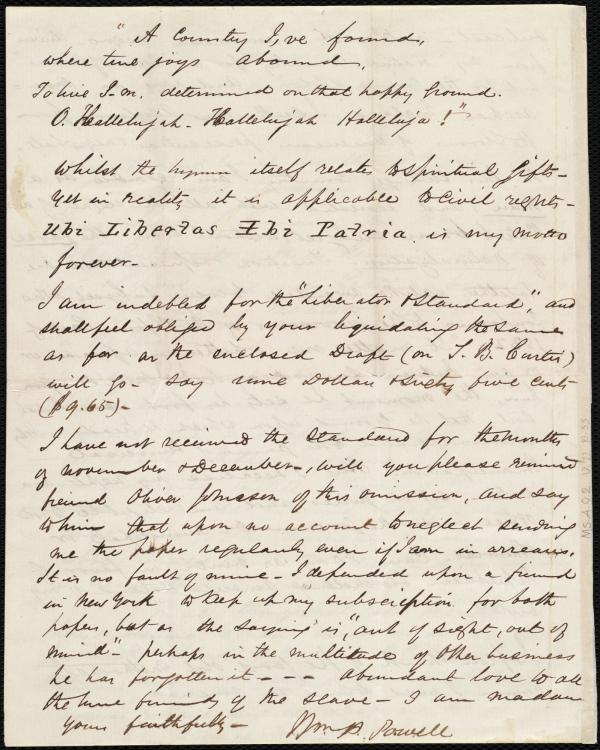 "A Country I,ve found,
where true joys abound,
To live I-m. determined on that happy ground.
O. Hallelujah - Hallelujah Halleluja!"
Whilst the hymn itself relates to Spiritual Gifts -
yet in reality it is applicable to civil rights -
Ubi Libertas Ibi Patria is my motto
forever -
I am indebted for the "Liberator & Standard", and
shall feel obliged by your liquidating the same
as far as the enclosed Draft (on T. B. Curtis)
will go - say nine Dollars & sixty five cents
($9.65) -
I have not received the Standard for the months
of november & December -, will you please remind
friend Oliver Johnson of this omission, and say
to him that upon no account to neglect sending
me the paper regularly even if I am in arrears.
It is no fault of mine - I depended upon a friend
in New York to keep up my subscription for both
papers, but as the saying is, "out of sight, out of
mind" - perhaps in the multitude of other business
he has forgotten it - - - abundant love to all
the true friends of the slave - I am madam
yours faithfully -
Wm. P. Powell
MS.A.9.2 v.